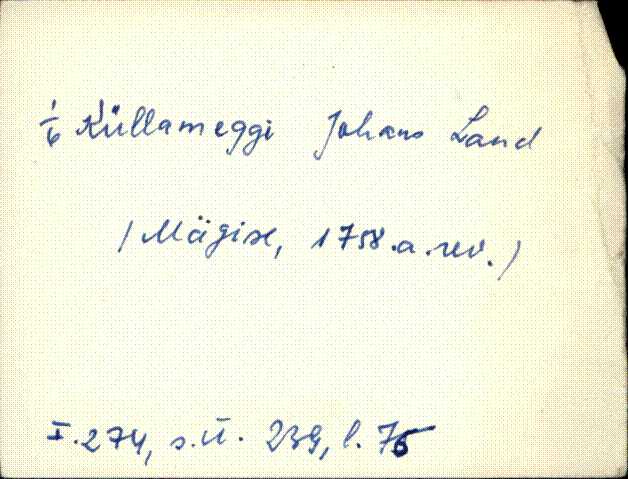 1/6 Küllameggi Johans Land
(Mägise, 1758.a.rev.)
I.274, s.ü. 239, l. 75